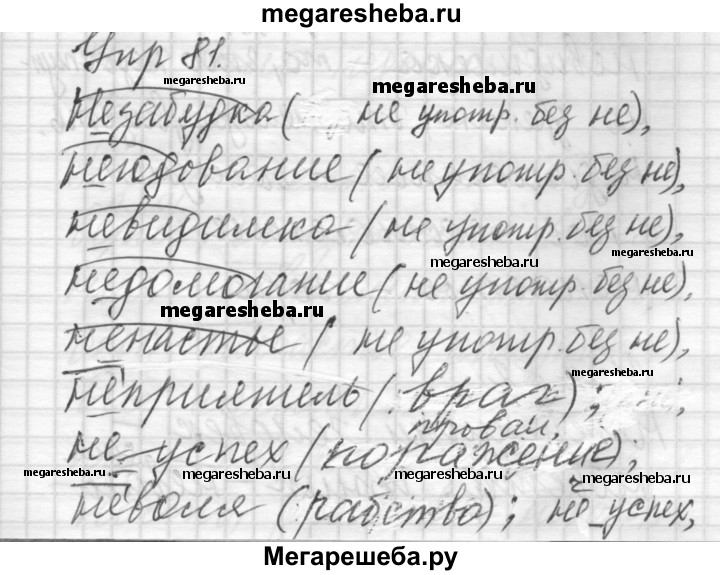 megaresheba.ru
Упр 81.
megaresheba.ru
megaresheba.ru
Незабудка ( не употр. без не),
негодование ( не употр. без не),
megaresheba.ru
невидимка ( не употр. без не),
megaresheba.ru
megaresheba.ru
недомогание ( не употр. без не),
megaresheba.ru
megaresheba.ru
ненастье ( не употр. без не),
неприятель ( враг);
провал,
не успех ( поражение);
megaresheba.ru
megaresheba.ru
megaresheba.ru
неволя (рабство); не успех,
Мегарешеба.ру